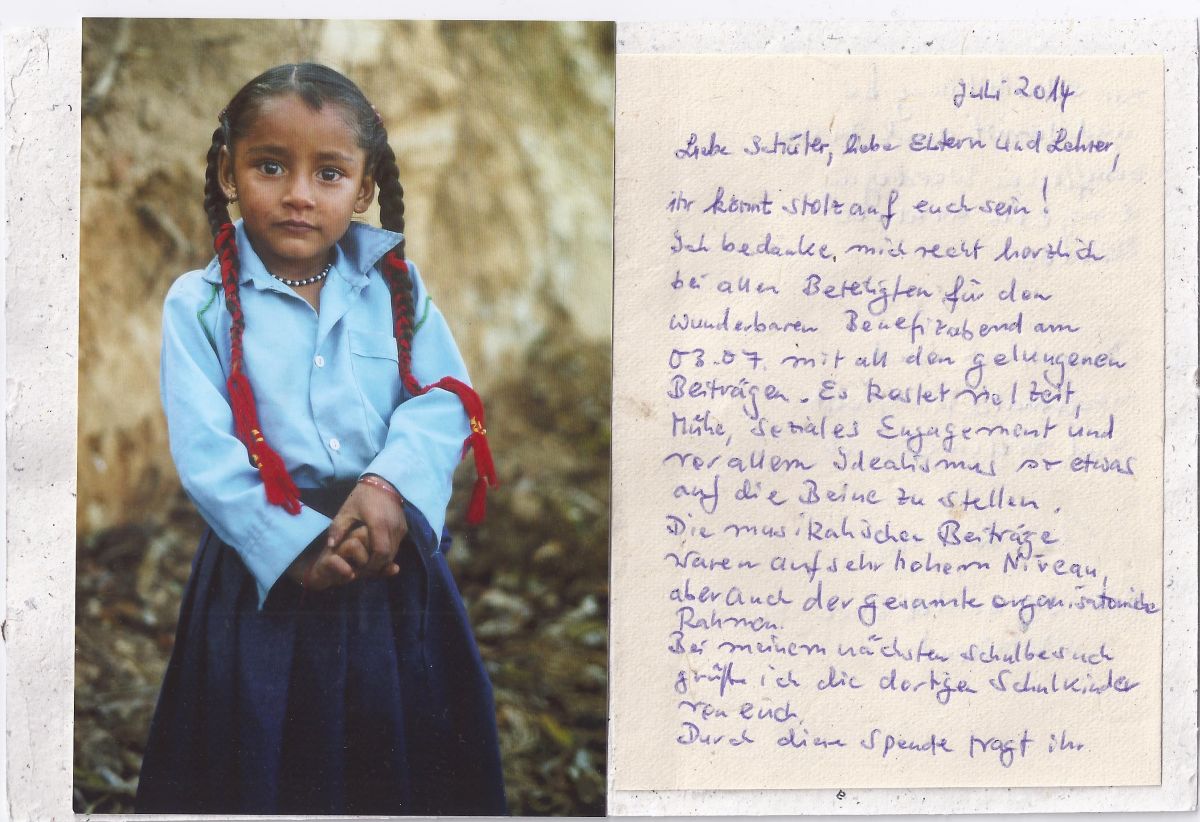 Juli 2014
Liebe Schüler, liebe Eltern und Lehrer,
ihr könnt stolz auf euch sein!
Ich bedanke mich recht herzlich
bei allen Beteiligten für den
wunderbaren Benefizabend am
03.07. mit all den gelungenen
Beiträgen. Es kostet viel Zeit,
Mühe, soziales Engagement und
vor allem Idealismus so etwas
auf die Beine zu stellen.
Die musikalischen Beiträge
waren auf sehr hohem Niveau,
aber auch der gesamte organisatorische
Rahmen.
Bei meinem nächsten Schulbesuch
grüße ich die dortigen Schulkinder
von euch.
Durch diese Spende tragt ihr